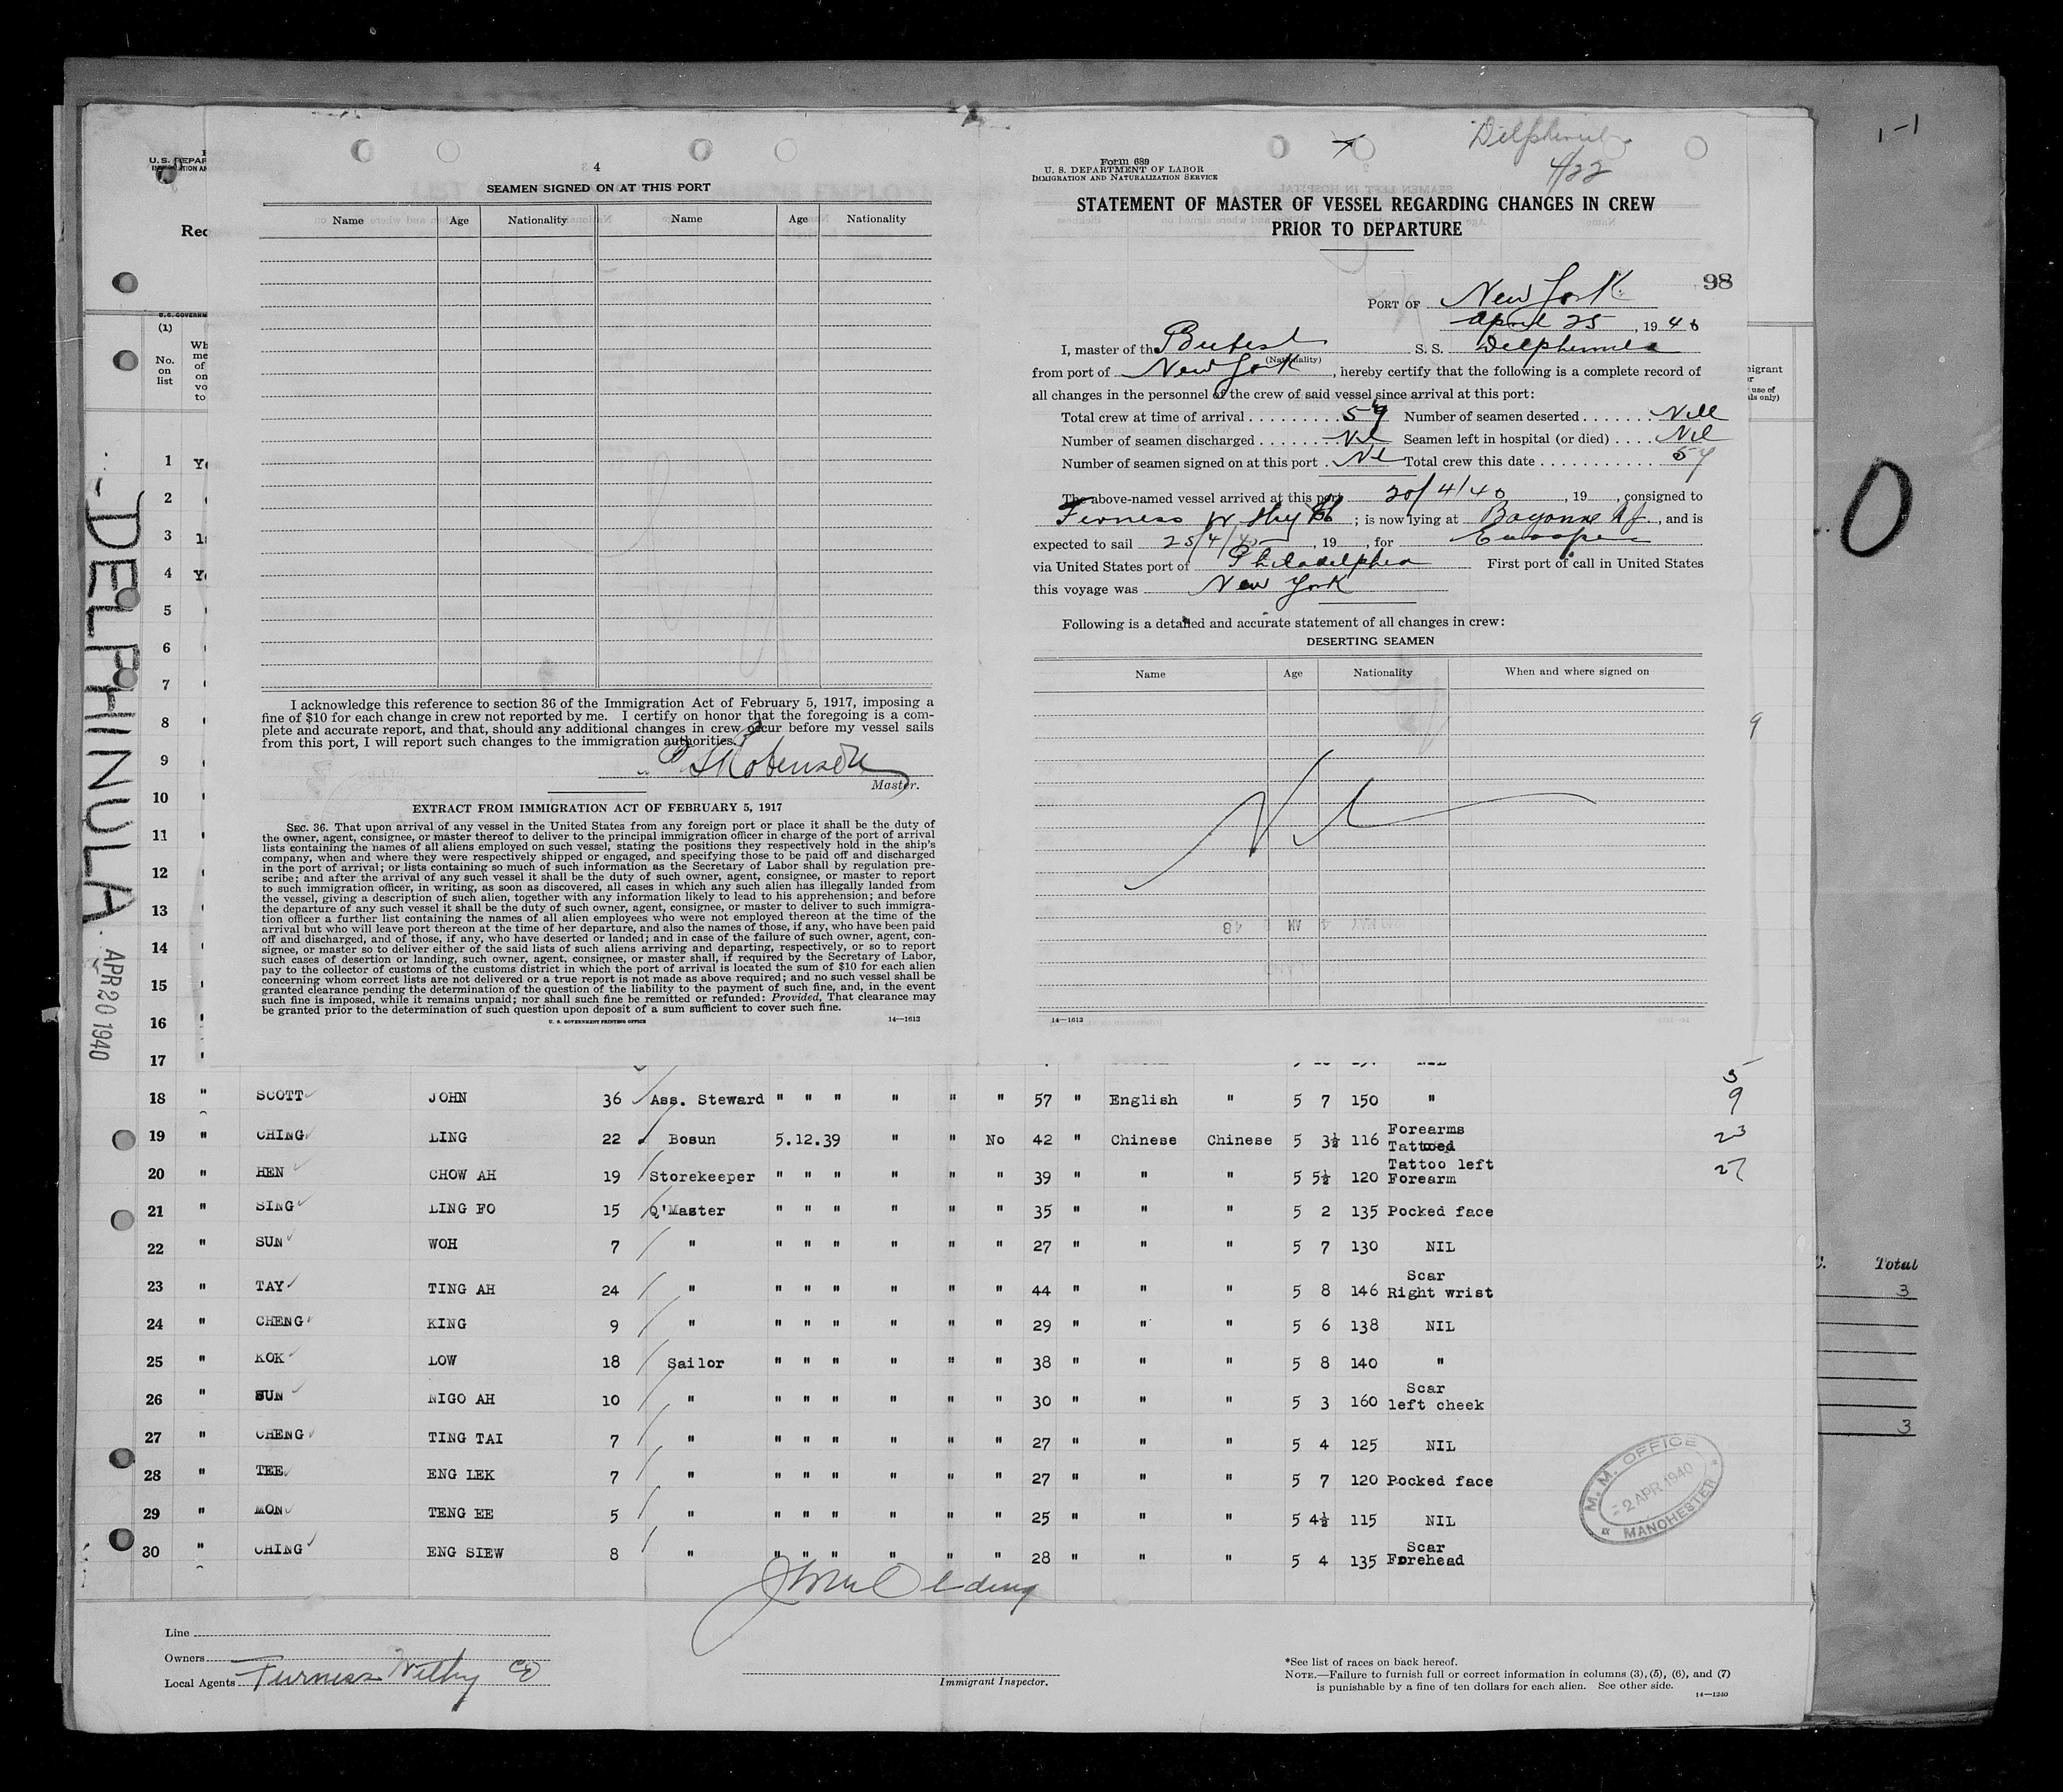 4
SEAMEN SIGNED ON AT THIS PORT
Name Age Nationality Name Age Nationality
I acknowledge this reference to section 36 of the Immigration Act of February 5, 1917, imposing a
fine of $10 for each change in crew not reported by me. I certify on honor that the foregoing is a com-
plete and accurate report, and that, should any additional changes in crew occur before my vessel sails
from this port, I will report such changes to the immigration authorities.
Robinson
Master.
EXTRACT FROM IMMIGRATION ACT OF FEBRUARY 5, 1917
SEC. 36. That upon arrival of any vessel in the United States from any foreign port or place it shall be the duty of
the owner, agent, consignee, or master thereof to deliver to the principal immigration officer in charge of the port of arrival
lists containing the names of all aliens employed on such vessel, stating the positions they respectively hold in the ship's
company, when and where they were respectively shipped or engaged, and specifying those to be paid off and discharged
in the port of arrival; or lists containing so much of such information as the Secretary of Labor shall by regulation pre-
scribe; and after the arrival of any such vessel it shall be the duty of such owner, agent, consignee, or master to report
to such immigration officer, in writing, as soon as discovered, all cases in which any such alien has illegally landed from
the vessel, giving a description of such alien, together with any information likely to lead to his apprehension; and before
the departure of any such vessel it shall be the duty of such owner, agent, consignee, or master to deliver to such immigra-
tion officer a further list containing the names of all alien employees who were not employed thereon at the time of the
arrival but who will leave port thereon at the time of her departure, and also the names of those, if any, who have been paid
off and discharged, and of those, if any, who have deserted or landed; and in case of the failure of such owner, agent, con-
signee, or master so to deliver either of the said lists of such aliens arriving and departing, respectively, or so to report
such cases of desertion or landing, such owner, agent, consignee, or master shall, if required by the Secretary of Labor,
pay to the collector of customs of the customs district in which the port of arrival is located the sum of $10 for each alien
concerning whom correct lists are not delivered or a true report is not made as above required; and no such vessel shall be
granted clearance pending the determination of the question of the liability to the payment of such fine, and, in the event
such fine is imposed, while it remains unpaid; nor shall such fine be remitted or refunded: Provided, That clearance may
be granted prior to the determination of such question upon deposit of a sum sufficient to cover such fine.
U. S. GOVERNMENT PRINTING OFFICE 14—1613
4/22
Form 689
U. S. DEPARTMENT OF LABOR
IMMIGRATION AND NATURALIZATION SERVICE
STATEMENT OF MASTER OF VESSEL REGARDING CHANGES IN CREW
PRIOR TO DEPARTURE
98
PORT OF New York
April 25, 1940
I, master of the British S. S. Delphinula
(Nationality)
from port of New York, hereby certify that the following is a complete record of
all changes in the personnel of the crew of said vessel since arrival at this port:
Total crew at time of arrival 59 Number of seamen deserted Nil
Number of seamen discharged Nil Seamen left in hospital (or died) Nil
Number of seamen signed on at this port Nil Total crew this date
The above-named vessel arrived at this port 20/4/40, 19 , consigned to
Furness ; is now lying at Bayonne N J., and is
expected to sail 25/4/40, 19 , for Europe
via United States port of Philadelphia First port of call in United States
this voyage was New York
Following is a detailed and accurate statement of all changes in crew:
DESERTING SEAMEN
Name Age Nationality When and where signed on
Nil
14—1613
U. S. DEPAR
Rec
(1)
No.
on
list
Wh
me
of
on
vo
to
DELPHINULA
APR 20 1940
1
2
3
4
5
6
7
8
9
10
11
12
13
14
15
16
17
18 " SCOTT JOHN 36 Ass. Steward " " " " " " 57 " English " 5 7 150 " 9
19 " CHING LING 22 Bosun 5.12.39 " " No 42 " Chinese Chinese 5 3½ 116 Forearms Tattoed 23
20 " HEN CHOW AH 19 Storekeeper " " " " " " 39 " " " 5 5½ 120 Tattoo left Forearm 27
21 " SING LING FO 15 Q'Master " " " " " " 35 " " " 5 2 135 Pocked face
22 " SUN WOH 7 " " " " " " " 27 " " " 5 7 130 NIL
23 " TAY TING AH 24 " " " " " " " 44 " " " 5 8 146 Scar Right wrist
24 " CHENG KING 9 " " " " " " " 29 " " " 5 6 138 NIL
25 " KOK LOW 18 Sailor " " " " " " 38 " " " 5 8 140 "
26 " SUN NIGO AH 10 " " " " " " " 30 " " " 5 3 160 Scar left cheek
27 " CHENG TING TAI 7 " " " " " " " 27 " " " 5 4 125 NIL
28 " TEE ENG LEK 7 " " " " " " " 27 " " " 5 7 120 Pocked face
29 " MON TENG EE 5 " " " " " " " 25 " " " 5 4½ 115 NIL
30 " CHING ENG SIEW 8 " " " " " " " 28 " " " 5 4 135 Scar Forehead
M. M. OFFICE
2 APR 1940
MANCHESTER
Line
Owners
Local Agents Furness Withy Co
Immigrant Inspector.
*See list of races on back hereof.
NOTE.—Failure to furnish full or correct information in columns (3), (5), (6), and (7)
is punishable by a fine of ten dollars for each alien. See other side.
14—1240
Total
3
3